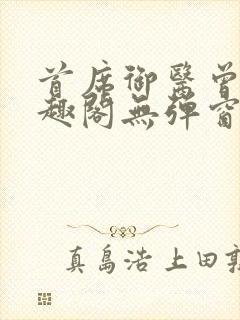 首席御醫曾
趣閣無彈窗
真島浩 上田敦